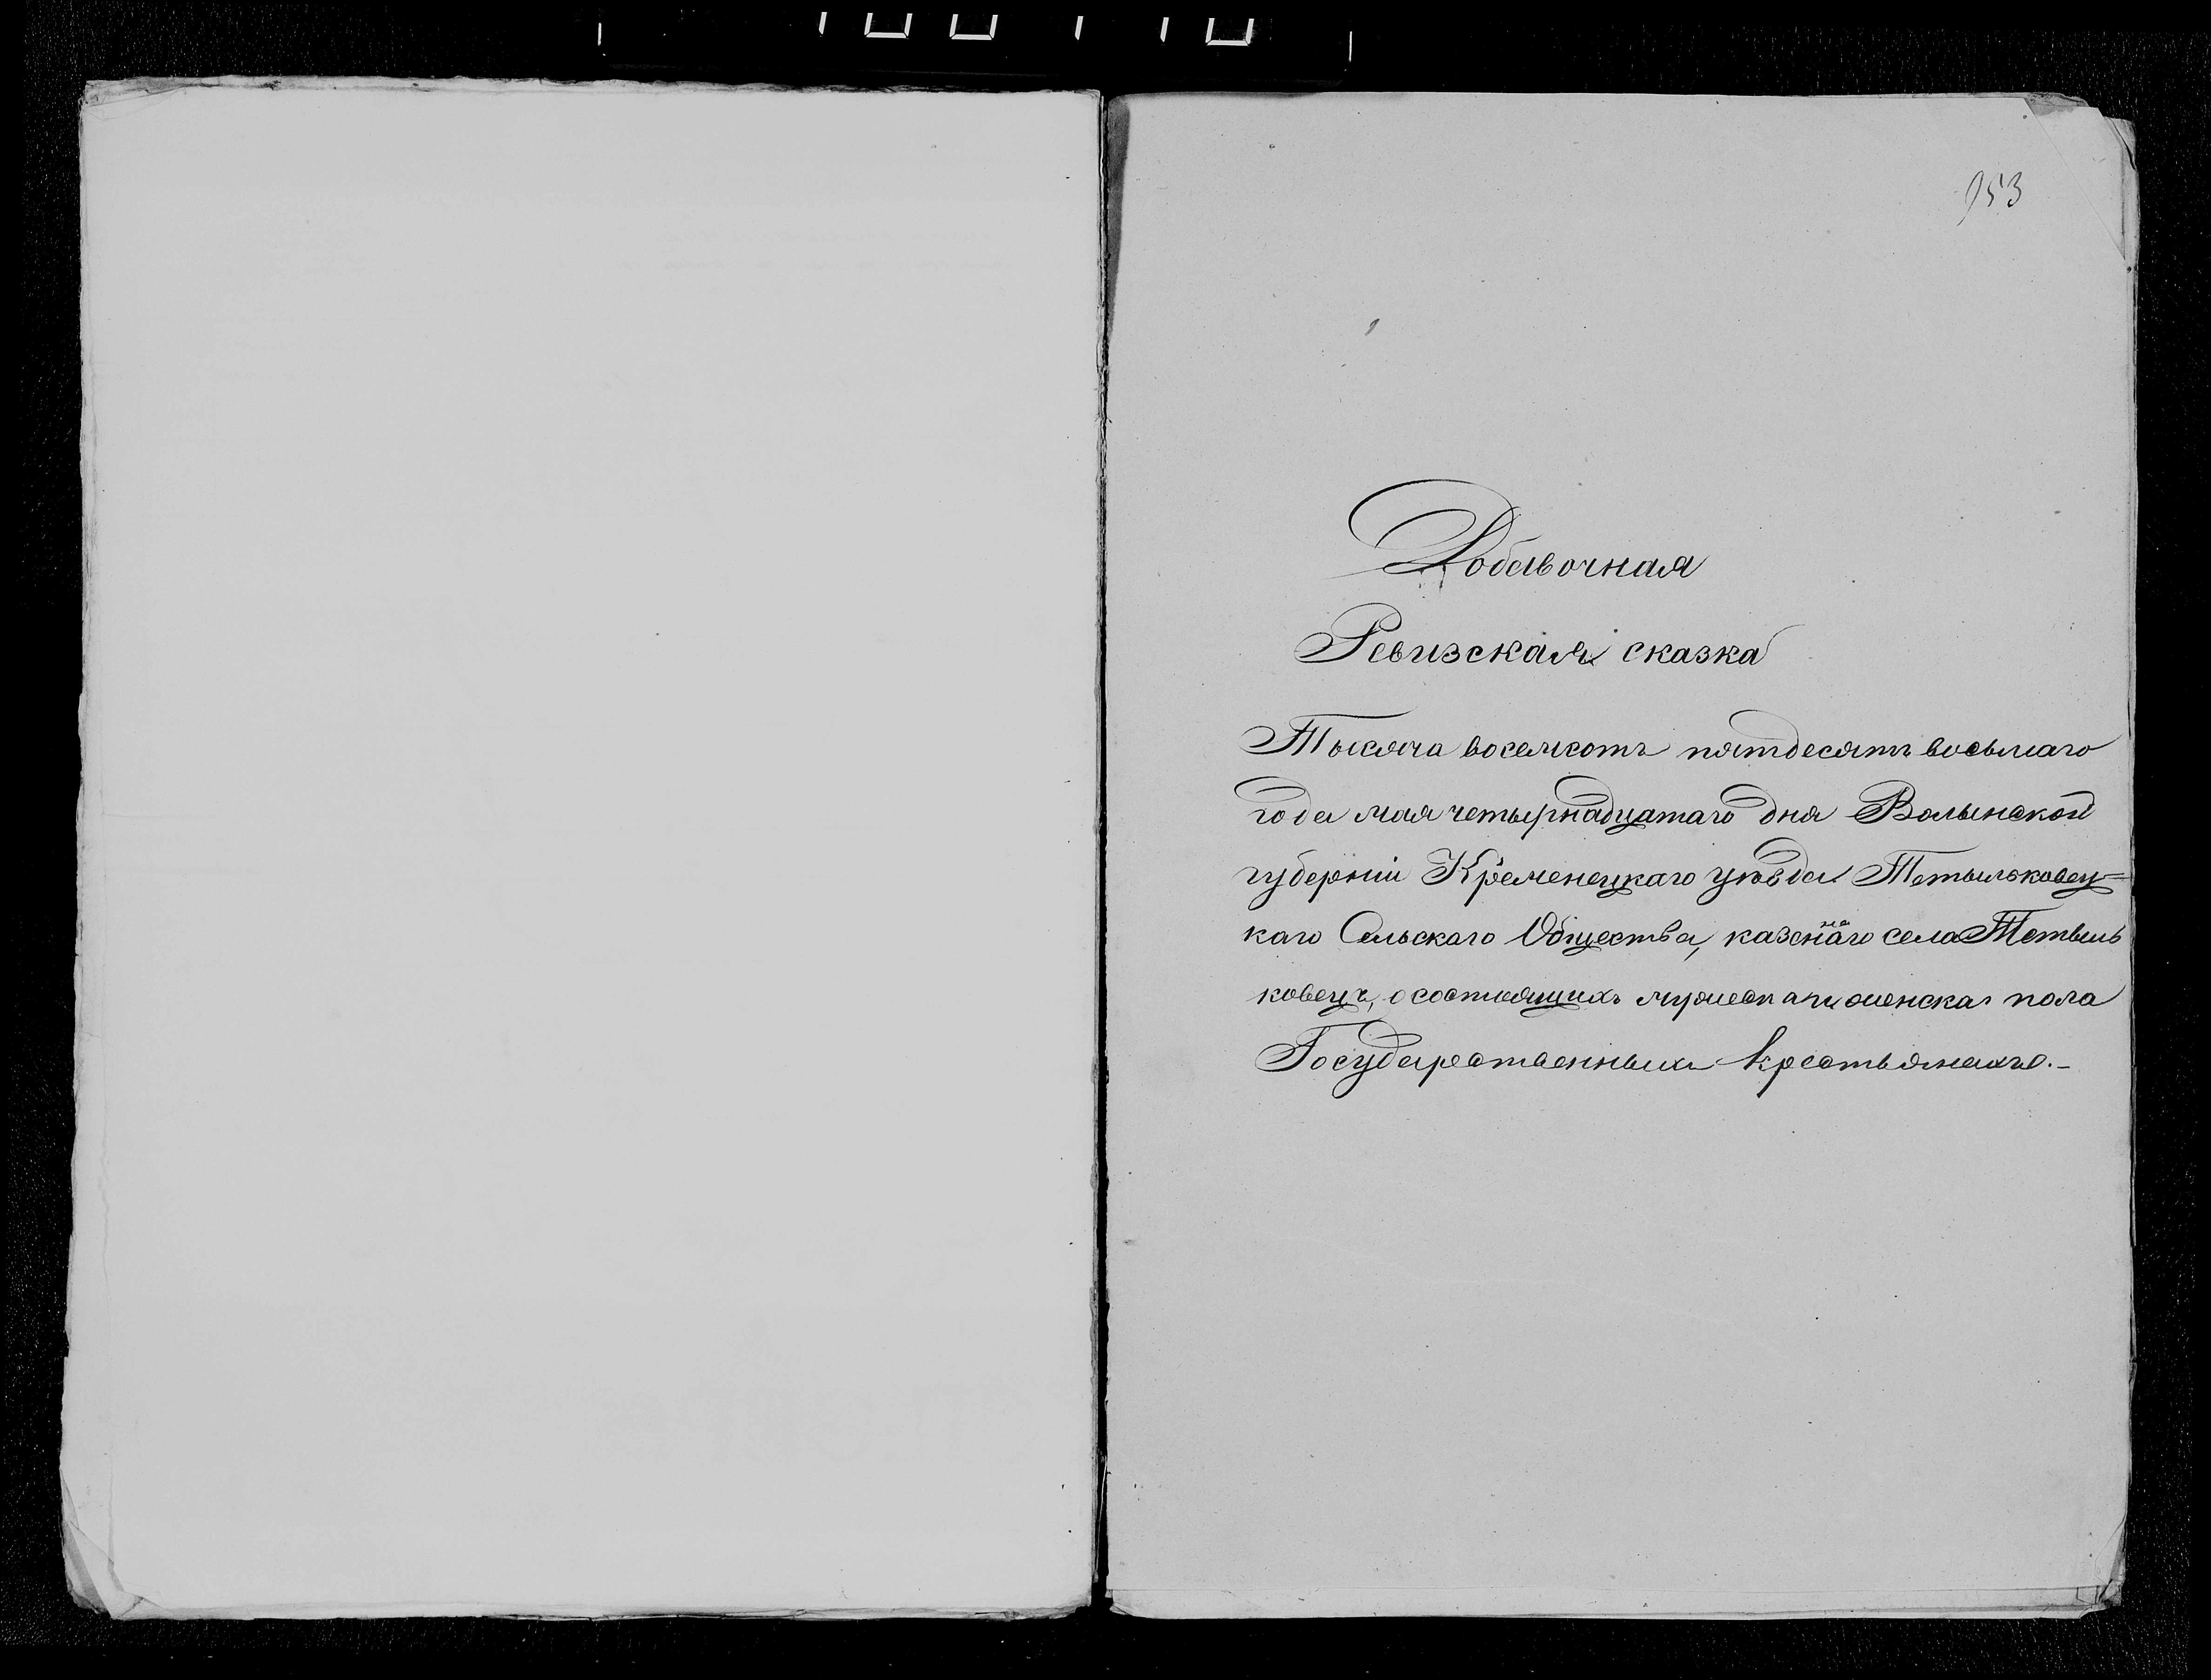 953
Добавочная
Ревизская сказка
Тысяча восемсотъ пятдесятъ восьмаго
года мая четырнадцатаго дня Волынской
губерніи Кременецкаго уѣзда Тетыльковец=
каго Сельскаго Общества, казеннаго села Тетыль
ковецъ, о состоящихъ мужеска и женска пола
Государственныхъ крестьянахъ.-